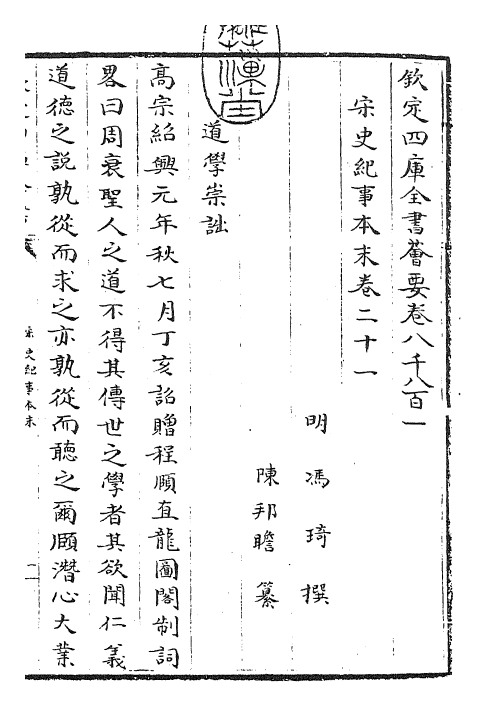 欽定四庫全書薈要卷八千八百一
宋史紀事本末卷二十一
明 馮琦 撰
陳邦瞻 纂
道學崇詘
高宗紹興元年秋七月丁亥詔贈程頤直龍圖閣制詞
畧曰周衰聖人之道不得其傳世之學者其欲聞仁義
道德之説孰從而求之亦孰從而聽之爾頤潛心大業
宋史紀事本末